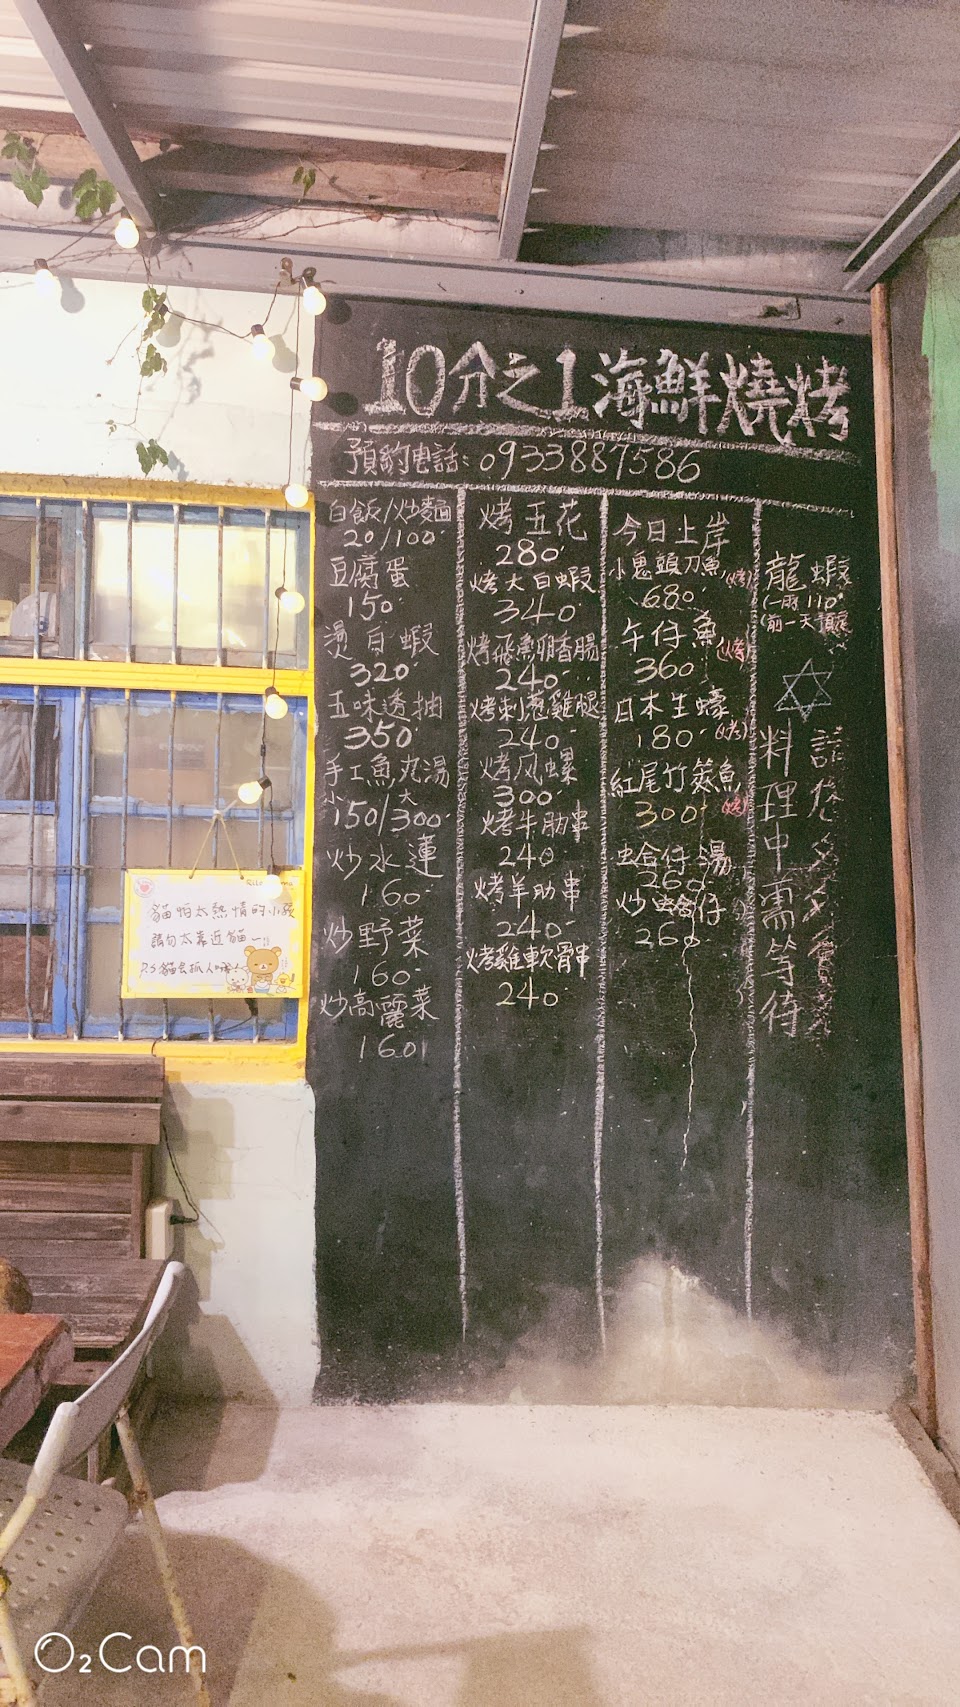 10分之1海鮮燒烤
預約电話:0933887586
白飯/炒麵
20/100
豆腐蛋
150
燙白蝦
320
五味透抽
350
手工魚丸湯
小 大
150/300
炒水蓮
160
炒野菜
160
炒高麗菜
160
烤五花
280
烤大白蝦
340
烤飛魚卵香腸
240
烤刺蔥雞腿
240
烤风螺
300
烤牛肋串
240
烤羊肋串
240
烤雞軟骨串
240
今日上岸
小鬼頭刀魚(烤)
680
午仔魚(烤)
360
日本生蠔(烤)
180
紅尾竹筴魚(烤)
300
蛤仔湯
260
炒蛤仔
260
龍蝦
(一兩110
(前一天預定
料理中需等待
貓怕太熱情的小孩
請勿太靠近貓
P.S 貓會抓人喔!
O₂Cam